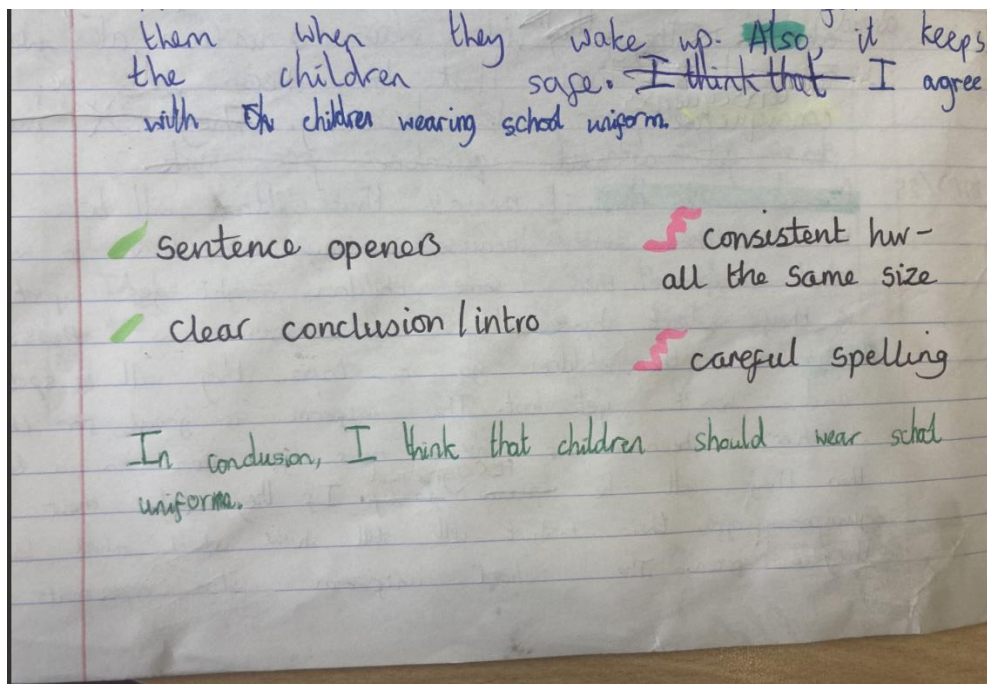 them when they wake up. Also, it keeps
the children safe. I think that I agree
with children wearing school uniform.
sentence openers
clear conclusion/intro
consistent hw-
all the same size
careful spelling
In conclusion, I think that children should wear school
uniforme.